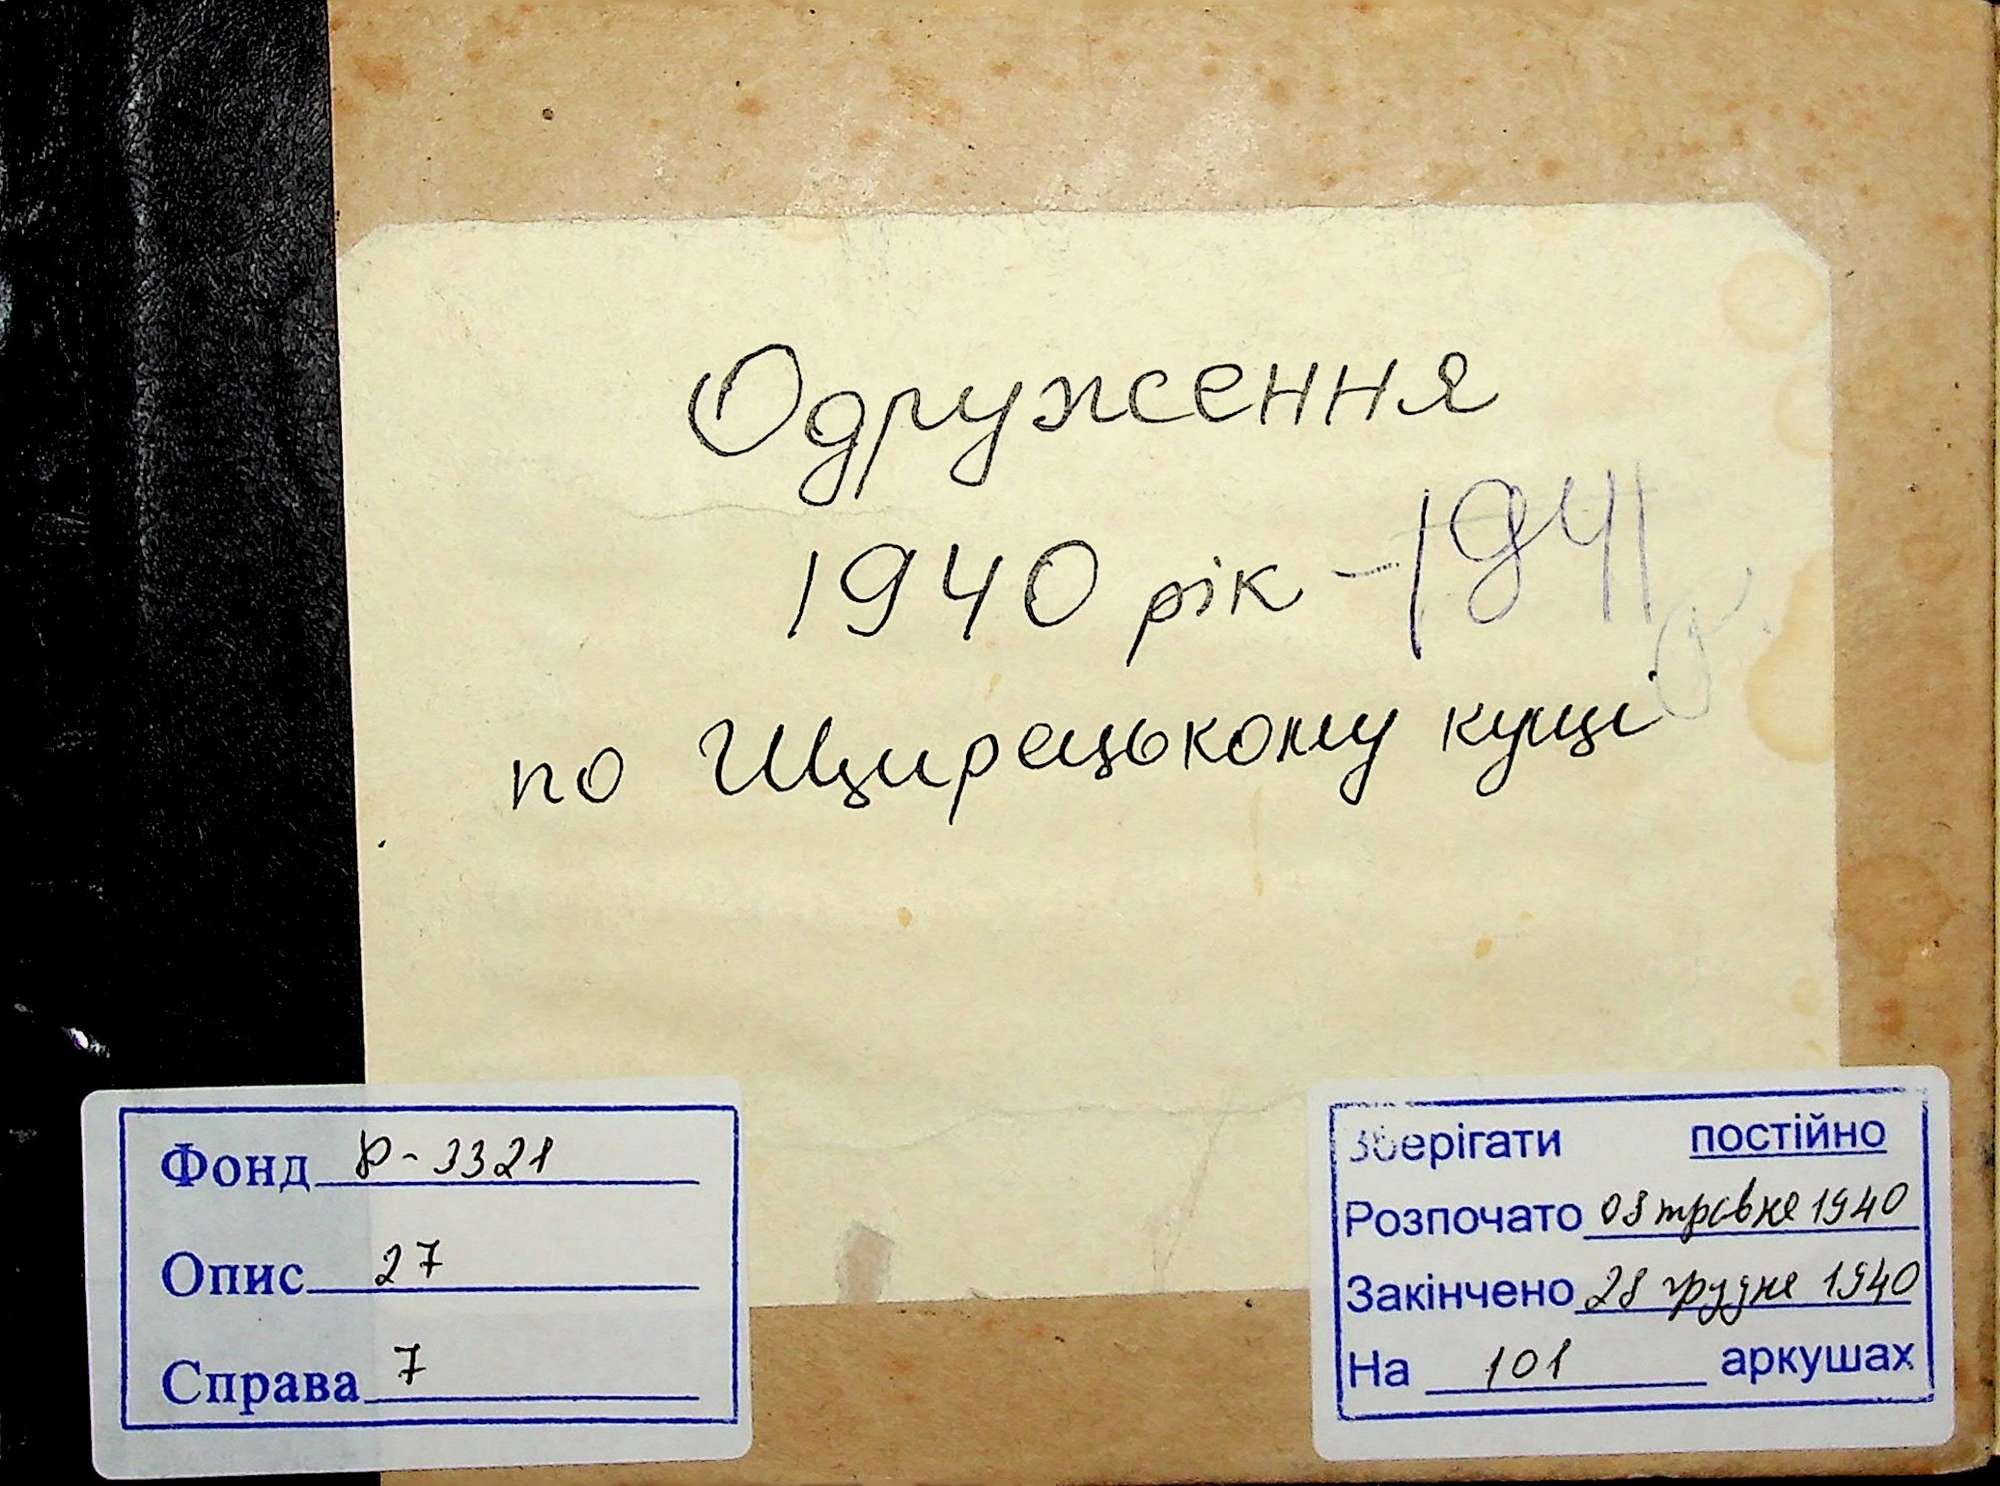 Одруження
1940 рік - 1941 р.
по Щирецькому кущі
Фонд Р-3321
Опис 27
Справа 7
Зберігати постійно
Розпочато 08 травня 1940
Закінчено 28 грудня 1940
На 101 аркушах